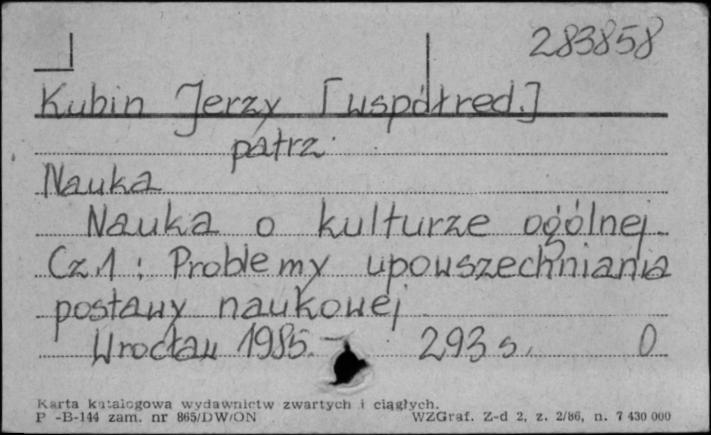 283858
Kubin Jerzy [współred.]
patrz
Nauka
Nauka o kulturze ogólnej.
Cz.1 : Problemy upowszechniania
postawy naukowej
Wrocław 1985.- 293 s. 0
Karta katalogowa wydawnictw zwartych i ciągłych.
P -B-144 zam. nr 865/DW/ON WZGraf. Z-d 2, z. 2/86, n. 7 430 000